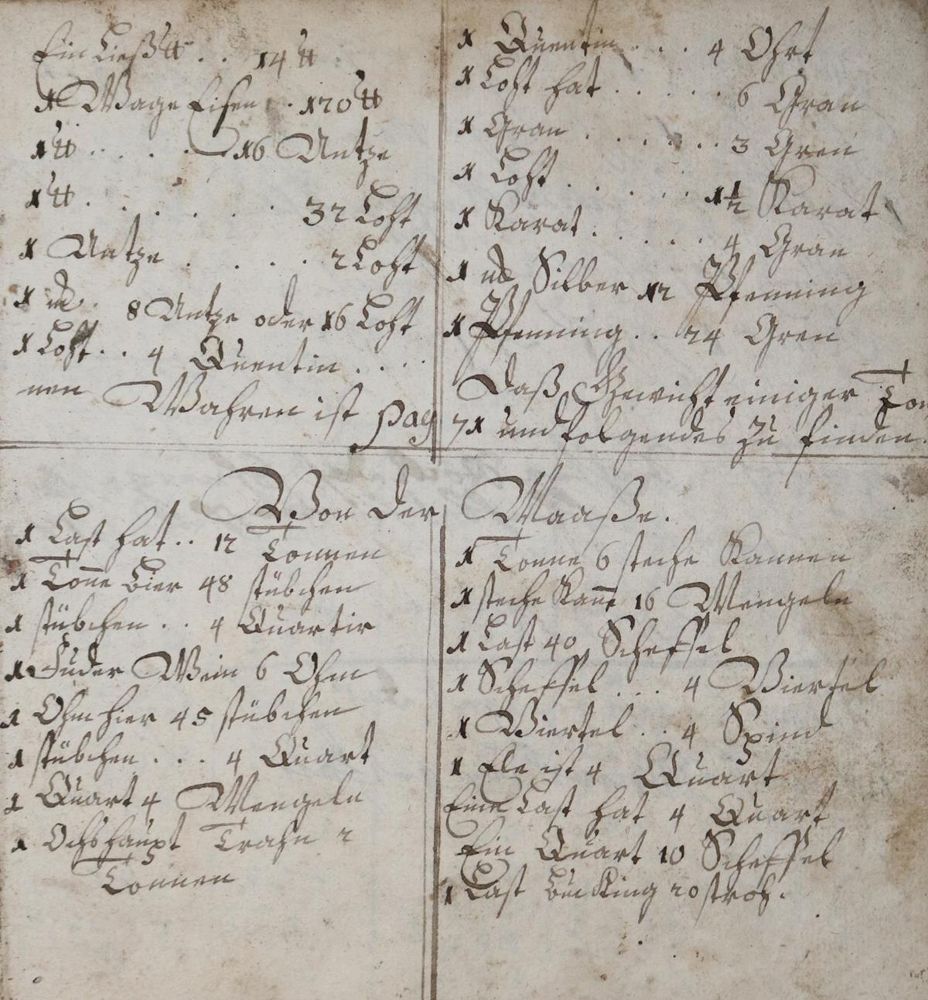 Ein Ließ ℔ . . 14 ℔
1 Wage Eisen . . 120 ℔
1 ℔ . . . . 16 Untze
1 ℔ . . . . . . . 32 Loht
1 Untze . . . . . 2 Loht
1 . 8 Untze oder 16 Loht
1 Loht . . 4 Quentin . . . .
1 Quentin . . . 4 Ohrt
1 Loht hat . . . . . . 6 Gran
1 Gran . . . . . . . 3 Gren
1 Loht . . . . . . 1½ Karat
1 Karat . . . . . . 4 Gran
1 Silber 12 Pfenning
1 Pfenning . . 24 Gren
Daß Gewicht einiger Ton
nen Wahren ist pag 71 und folgendes zu finden.
Von der Maaße.
1 Last hat . . 12 Tonnen
1 Tonne Bier 48 stübchen
1 stübchen . . 4 Quartir
1 Fuder Wein 6 Ohm
1 Ohm hier 45 stübchen
1 stübchen . . . 4 Quart
1 Quart 4 Mengeln
1 Ochshaupt Trahn 2
Tonnen
1 Tonne 6 steche Kannen
1 steche Kanne 16 Mengeln
1 Last 40 Scheffel
1 Scheffel . . . 4 Viertel
1 Viertel . . 4 Spind
1 Ele ist 4 Quart
Eine Last hat 4 Quart
Ein Quart 10 Scheffel
1 Last Bücking 20 stroh.